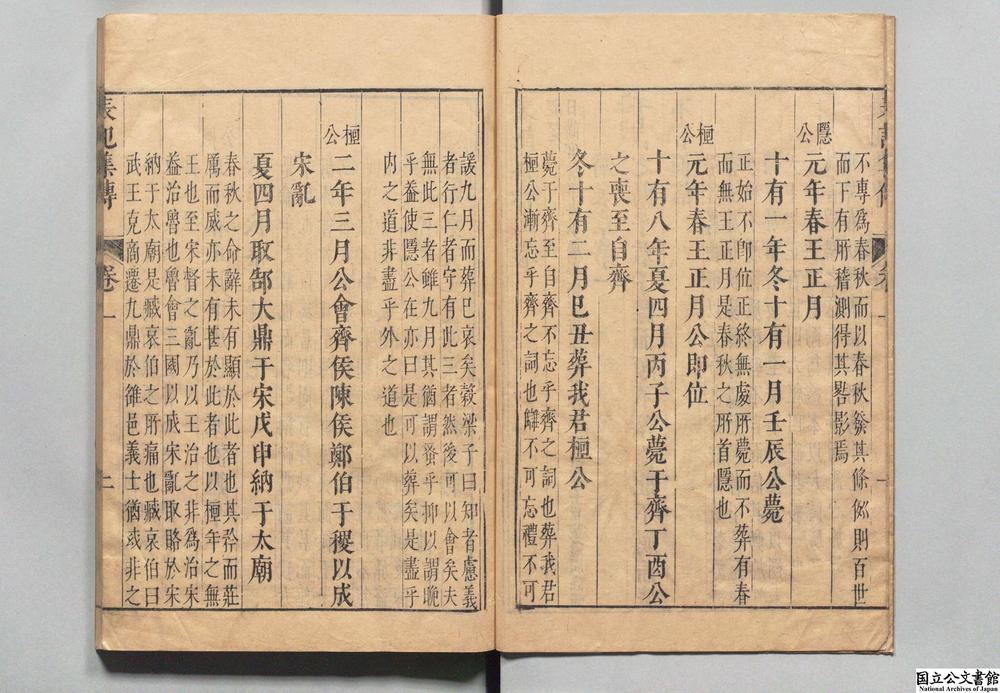 不專為春秋而以春秋發其條例則百世
而下有所稽測得其畧影焉
隱公
元年春王正月
十有一年冬十有一月壬辰公薨
正始不卽位正終無處所薨而不葬有春
而無王正月是春秋之所首隱也
桓公
元年春王正月公即位
十有八年夏四月丙子公薨于齊丁酉公
之喪至自齊
冬十有二月巳丑葬我君桓公
薨于齊至自齊不忘乎齊之詞也葬我君
桓公漸忘乎齊之詞也讎不可忘禮不可
諼九月而葬巳哀矣穀梁子曰知者慮義
者行仁者守有此三者然後可以會矣夫
無此三者雖九月其猶謂蚤乎抑以謂晚
乎葢使隱公在亦曰是可以葬矣是盡乎
内之道非盡乎外之道也
桓公
二年三月公會齊侯陳侯鄭伯于稷以成
宋亂
夏四月取郜大鼎于宋戊申納于太廟
春秋之命辭未有顯於此者也其矜而莊
厲而威亦未有甚於此者也以桓年之無
王也至宋督之亂乃以王治之非為治宋
葢治魯也魯會三國以成宋亂取賂於宋
納于太廟是臧哀伯之所痛也臧哀伯曰
武王克商遷九鼎於雒邑義士猶或非之
表記集傳
卷一
二
国立公文書館
National Archives of Japan